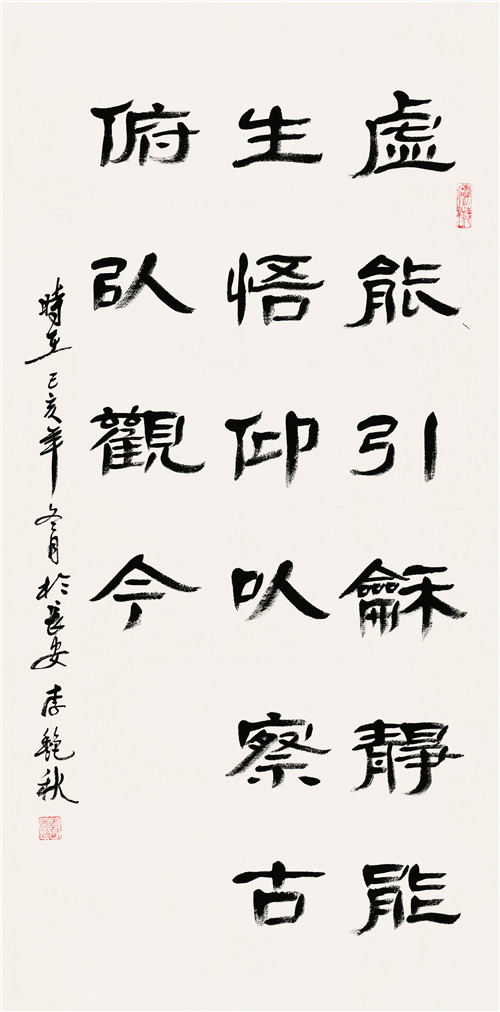 虛能引龢靜能
生悟仰以察古
俯以觀今
時在己亥年冬月於長安李艷秋